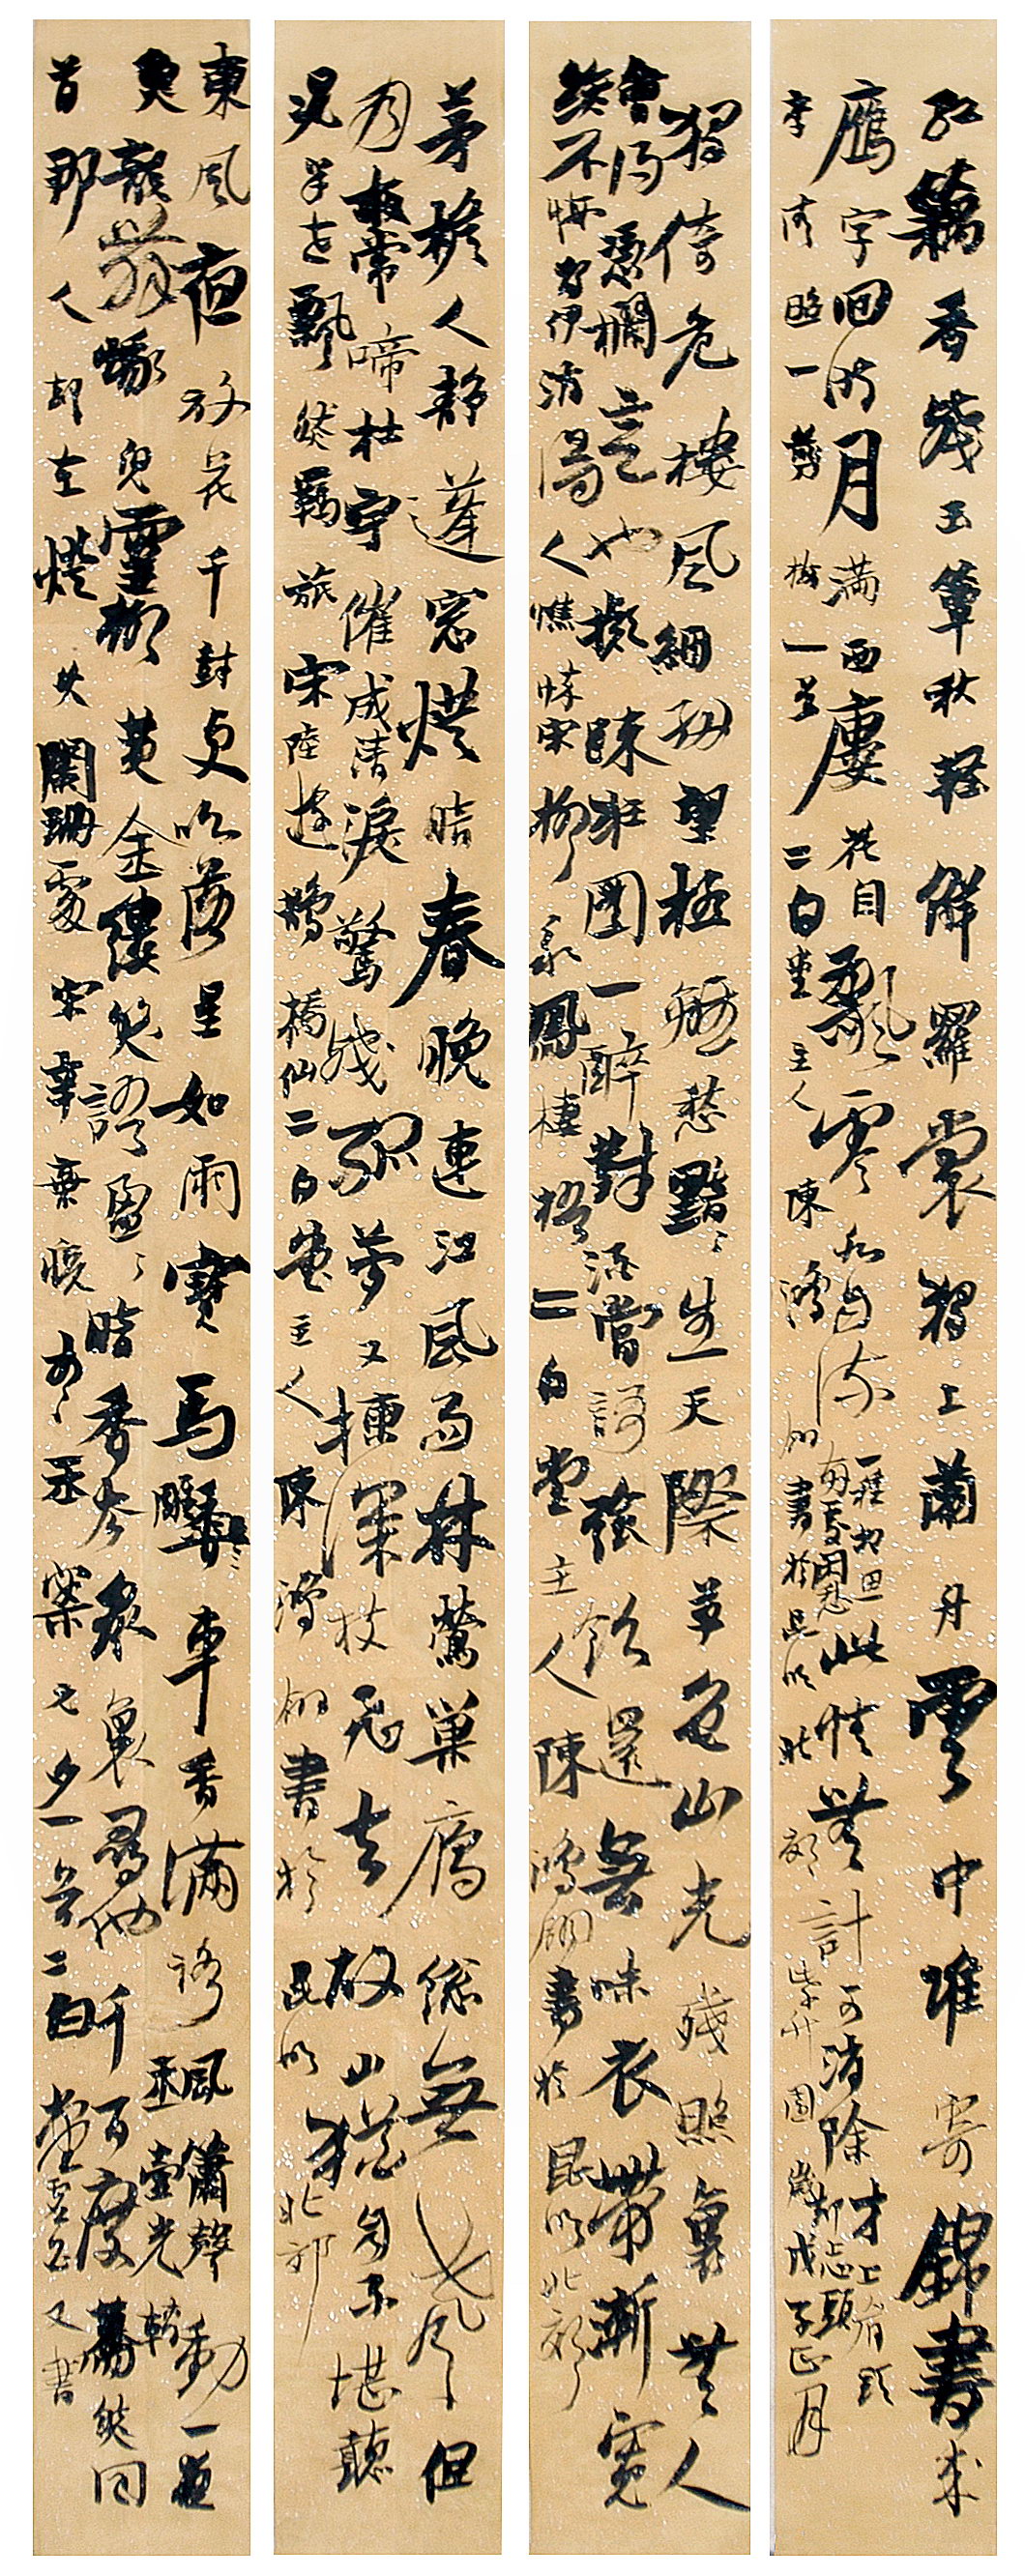 紅藕香殘玉簟秋輕解羅裳獨上蘭舟雲中誰寄錦書來
雁字回時月滿西樓花自飄零水自流一種相思兩處閑愁此情無計可消除才下眉頭却上心頭
李清照一剪梅一首二白堂主人陳鴻翎書於昆明北郊 園歲戊子正月
獨倚危樓風細細望極離愁黯黯生天際草色山光殘照裏無人
會得憑欄意也擬疎狂圖一醉對酒當歌強飲還無味衣帶漸寬
終不悔為伊消得人憔悴宋柳永鳳棲梧二白堂主人陳鴻翎書於昆明北郊
茅檐人靜蓬窗燈暗春晚連江風雨林鶯巢燕總無聲但
月夜常啼杜宇催成清淚驚殘孤夢又揀深枝飛去故山猶自不堪聽
況半世飄然羈旅宋陸游鵲橋仙二白堂主人陳鴻翎書於昆明北郊
東風夜放花千封更吹落星如雨寶馬雕車香滿路風簫聲動玉壺光轉一夜
魚龍舞蛾兒雪柳黃金縷笑語盈盈暗香去衆裏尋他千百度驀然回
首那人却在燈火闌珊處宋辛棄疾 青玉案 二白堂 又書